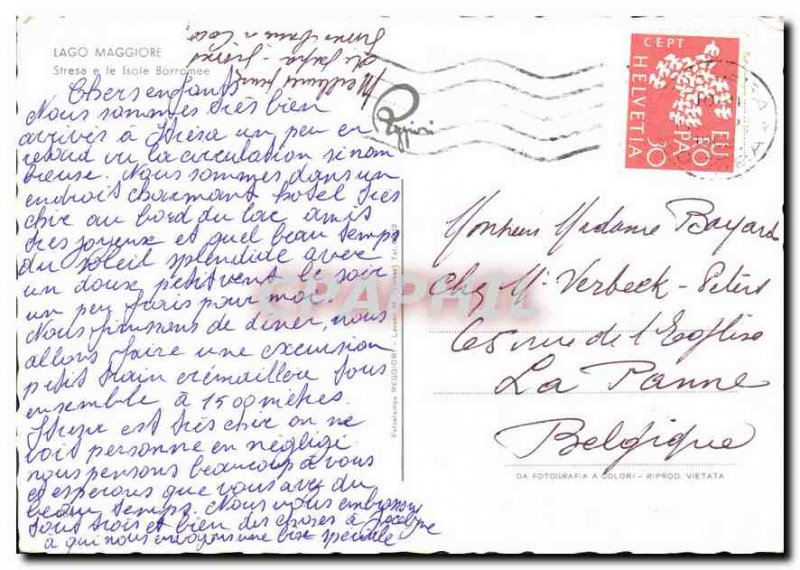 LAGO MAGGIORE
Stresa e le Isole Borromee
Meilleurs
de papa
Chers enfants
Nous sommes très bien
arrivés à Stresa un peu en
retard vu la circulation si nom
breuse. Nous sommes dans un
endroit charmant hotel très
chic au bord du lac amis
très joyeux et quel beau temps
du soleil splendide avec
un doux petit vent le soir
un peu frais pour moi.
Nous finissons de diner, nous
allons faire une excursion
petit train crémaillère tous
ensemble à 1500 mètres.
Stresa est très chic on ne
voit personne en négligé
nous pensons beaucoup à vous
et esperons que vous avez du
beau temps. Nous vous embrassons
tous trois et bien des choses à Jocelyne
à qui nous envoyons une bise speciale
Reggiori
CEPT
HELVETIA
EUROPA
30
Monsieur Madame Bayard
Chez Mr Verbeck-Peters
65 rue de l'Eglise
La Panne
Belgique
CARAPHIL
Fotoslampa REGGIORI
DA FOTOGRAFIA A COLORI - RIPROD. VIETATA